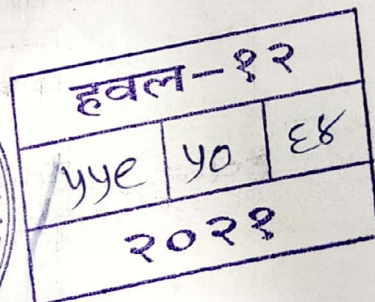 हवल-१२
५५९ ५० ६४
२०२१